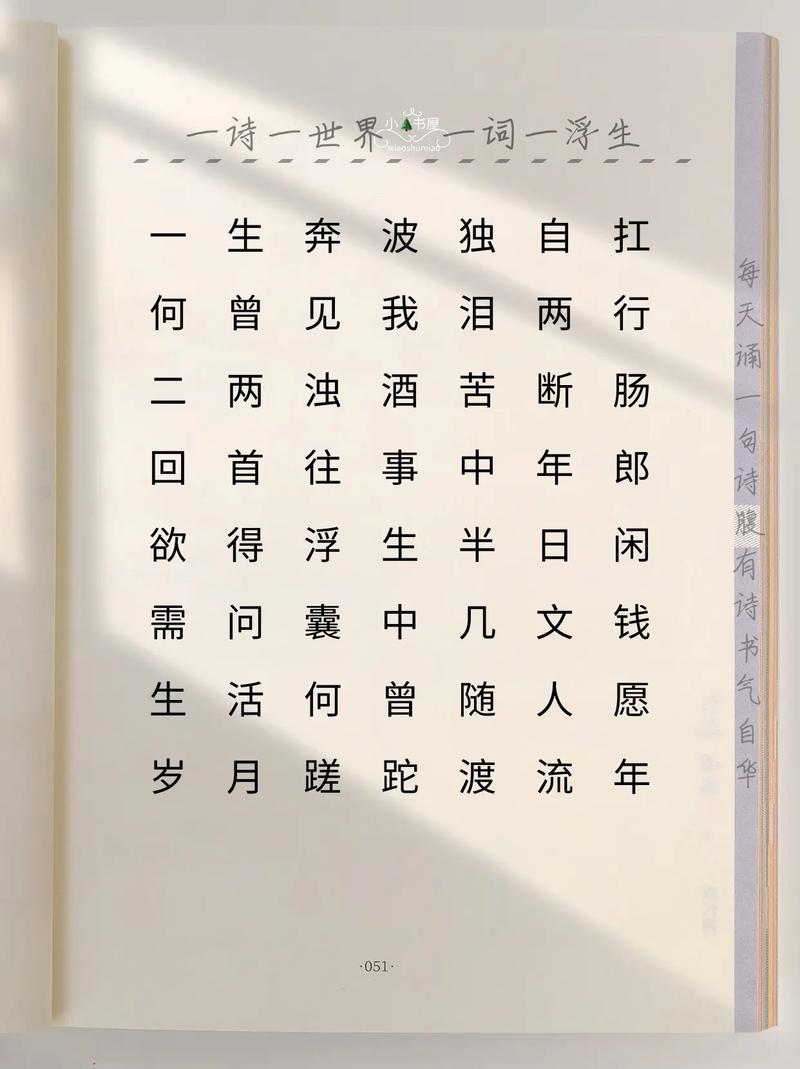 一诗一世界 一词一浮生
小 书屋
ixiaoshumiao
一生奔波独自扛
何曾见我泪两行
二两浊酒苦断肠
回首往事中年郎
欲得浮生半日闲
需问囊中几文钱
生活何曾随人愿
岁月蹉跎渡流年
·051·
每天诵一句诗腹有诗书气自华